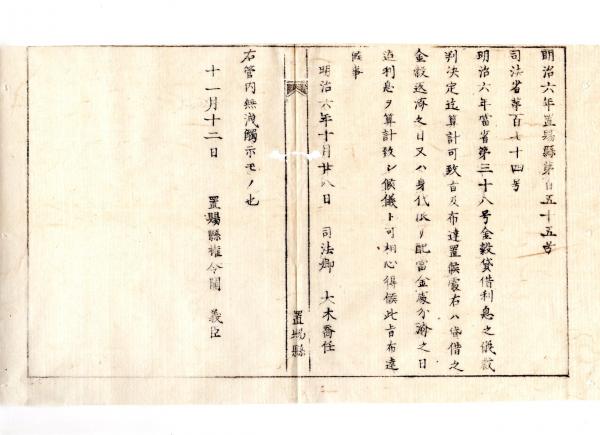 明治六年置賜縣第百五十五号
司法省第百七十四号
明治六年當省第三十八号金穀貸借利息之儀裁
判決定迄算計可致旨及布達置候處右ハ貸借之
金穀返済之日又ハ身代限リ配當金滅分済之日
迄利息ヲ算計致シ候儀ト可相心得候此旨布達
候事
明治六年十月廿八日 司法卿 大木喬任
置賜縣
右管内無洩觸示モノ也
十一月十二日 置賜縣権令関 義臣